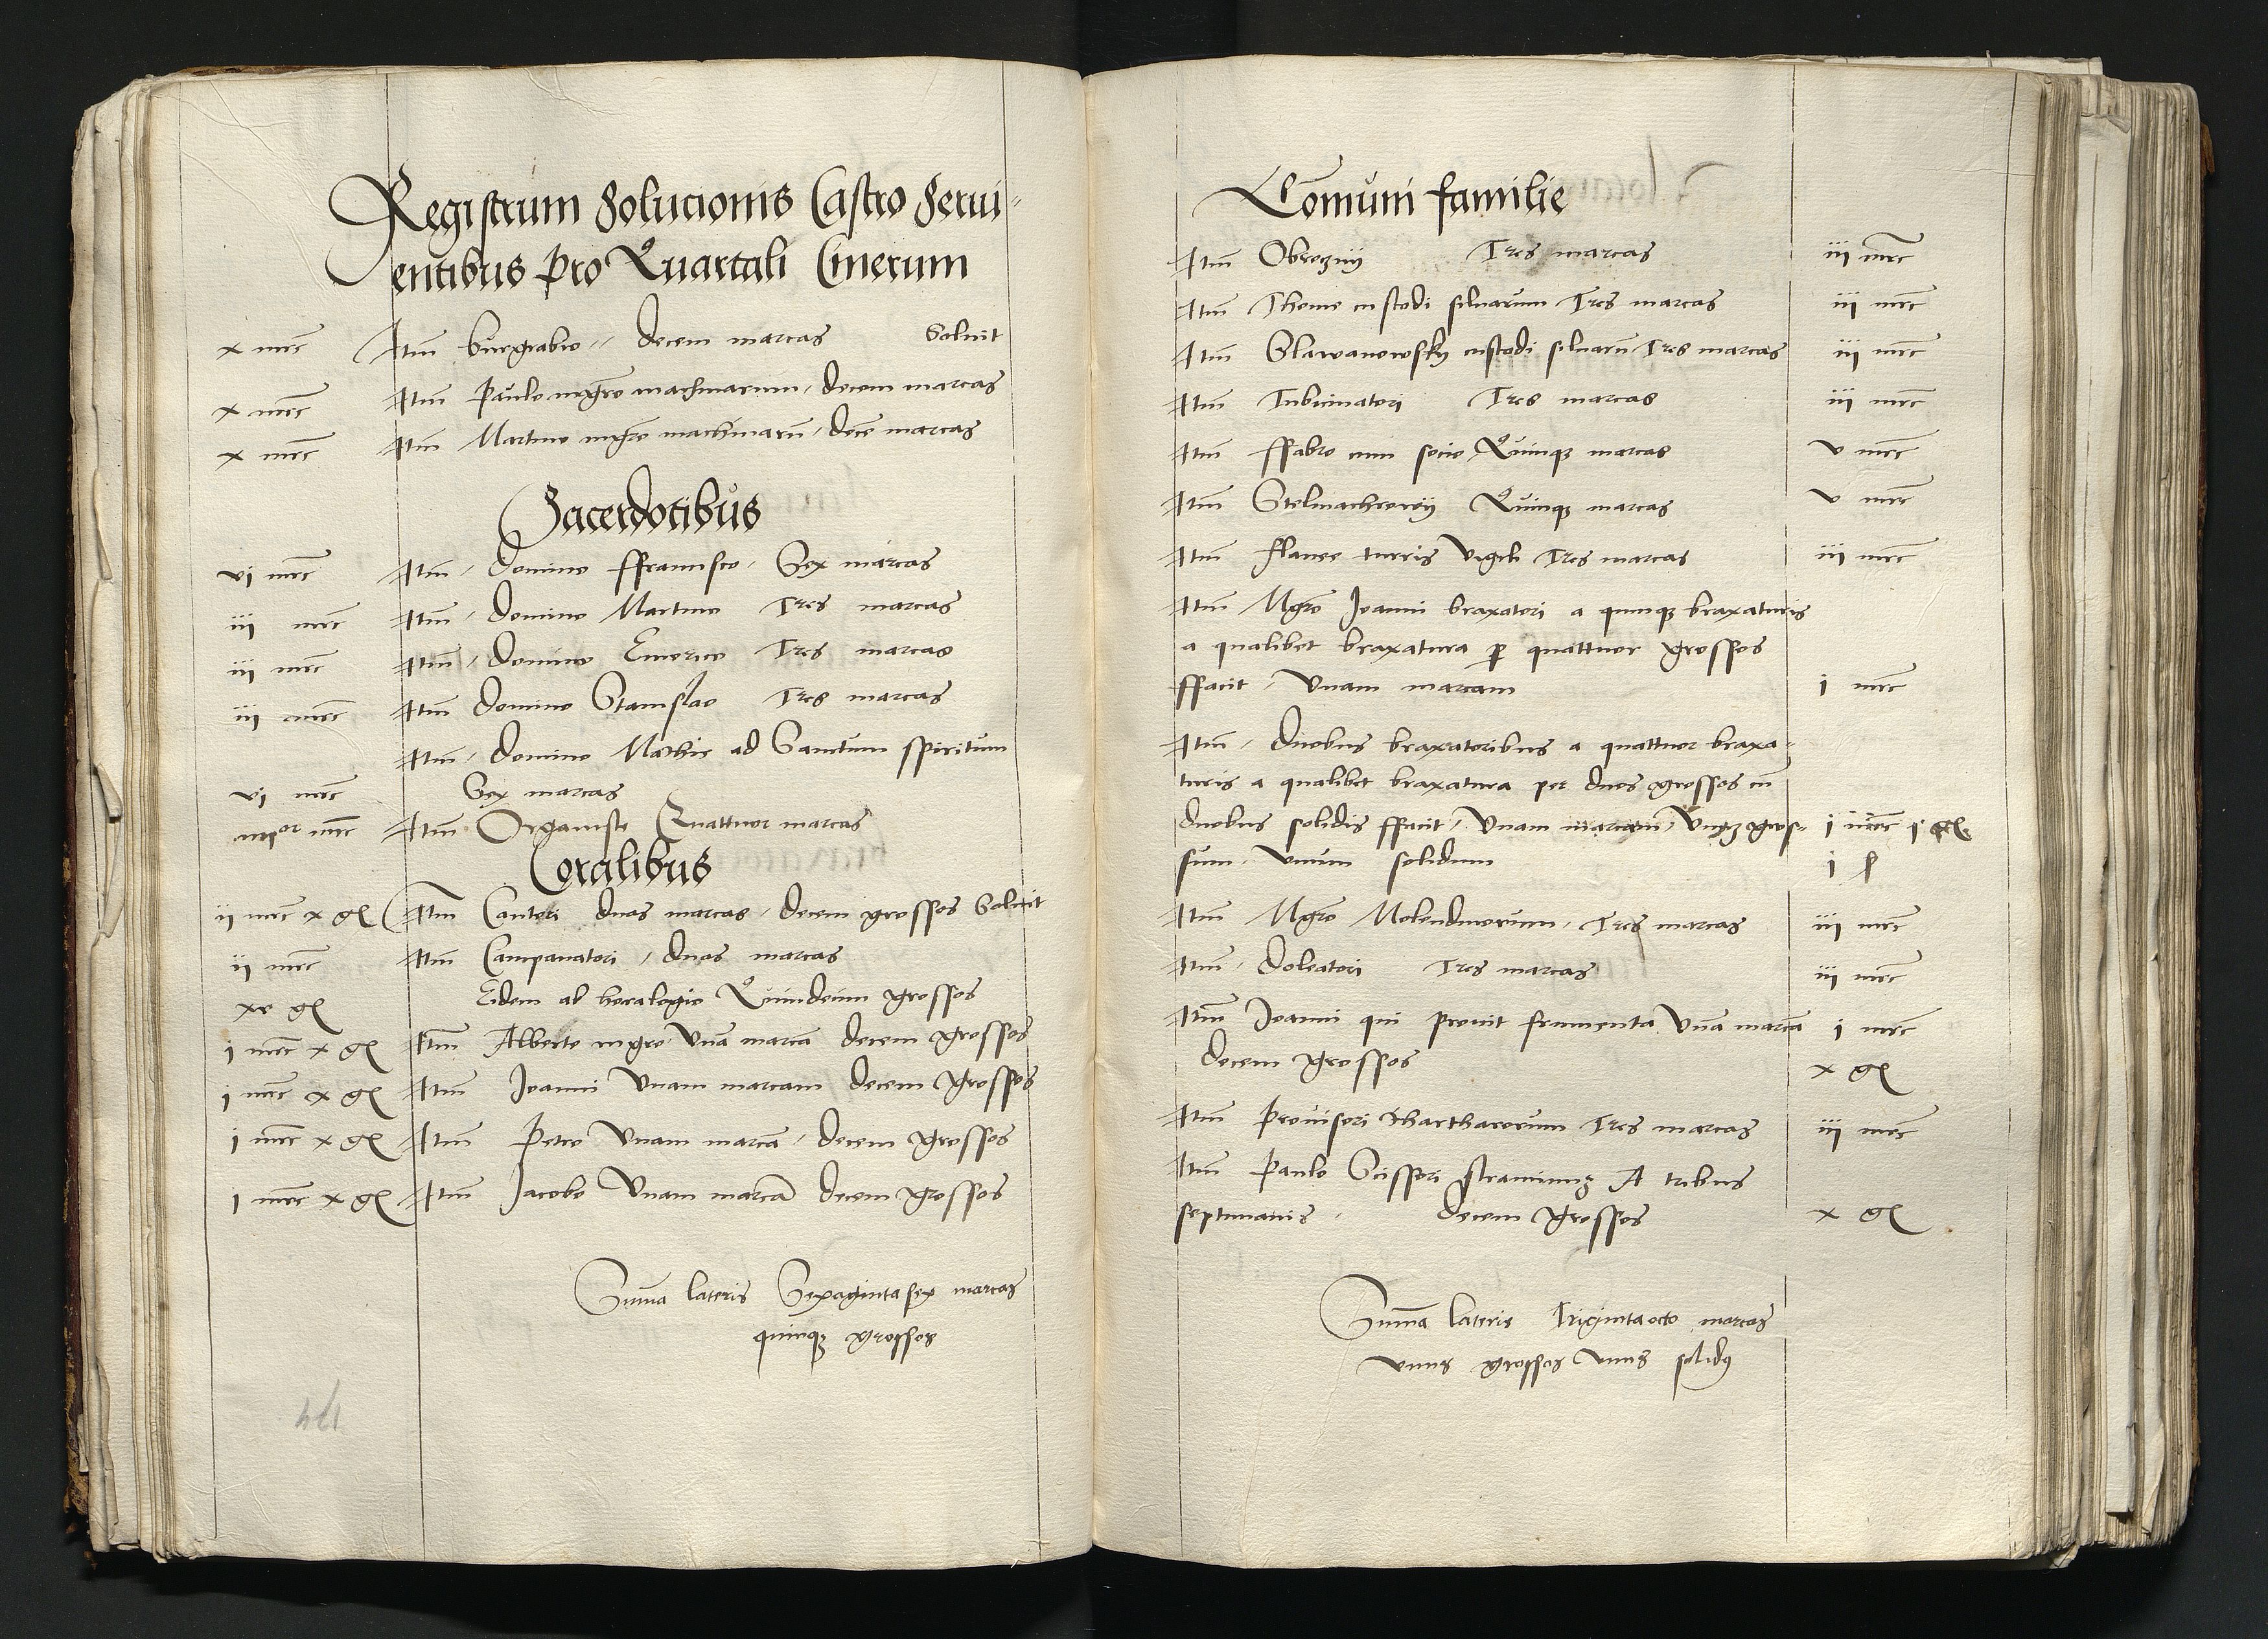 Registrum Solucionis Castro Servi-
entibus Pro Quartali Cinerum
x mrc Itm Burgrabio decem marcas Solvit
x mrc Itm Paulo mgro machinarum decem marcas
x mrc Itm Martino mgro machinarum decem marcas
Sacerdotibus
vi mrc Itm domino ffrancisco Sex marcas
iii mrc Itm domino Martino Tres marcas
iii mrc Itm domino Emerico Tres marcas
iii mrc Itm domino Stanislao Tres marcas
Itm domino Mathie ad Sanctum spiritum
vi mrc Sex marcas
iiiior mrc Itm Organiste Quattuor marcas
Coralibus
ii mrc x gr Itm Cantori duas marcas decem grossos Solvit
ii mrc Itm Campanatori duas marcas
xv gr Eidem ab horalogio Quindecim grossos
i mrc x gr Itm Alberto nigro Una marca decem grossos
i mrc x gr Itm Joanni Unam marcam decem grossos
i mrc x gr Itm Petro Unam marca decem grossos
i mrc x gr Itm Jacobo Unam marca decem grossos
Summa lateris Sexaginta sex marcas
quinque grossos
174
Comuni familie
Itm Obrozny Tres marcas iii mrc
Itm Thome custodi silvarum Tres marcas iii mrc
Itm Slawanowsky custodi silvaru Tres marcas iii mrc
Itm Tubicinatori Tres marcas iii mrc
Itm ffabro cum socio Quinque marcas v mrc
Itm Stelmachowy Quinque marcas v mrc
Itm turris vigili Tres marcas iii mrc
Itm Mgro Joanni braxatori a quinque braxaturis
a qualibet braxatura per quattuor grossos
ffacit Unam marcam i mrc
Itm duobus braxatoribus a quattuor braxa-
turis a qualibet braxatura per duos grossos cu
duobus solidis ffacit Unam marcam Unum gros- i mrc i gr
sum Unum solidum i s
Itm Mgro Molendinorum Tres marcas iii mrc
Itm doleatori Tres marcas iii mrc
Itm Joanni qui frumenta Una marca i mrc
decem grossos x gr
Itm Provisori Thartharorum Tres marcas iii mrc
Itm Paulo Scissori straminum A tribus
septimanis decem grossos x gr
Summa lateris Triginta octo marcas
unus grossos unus solidus